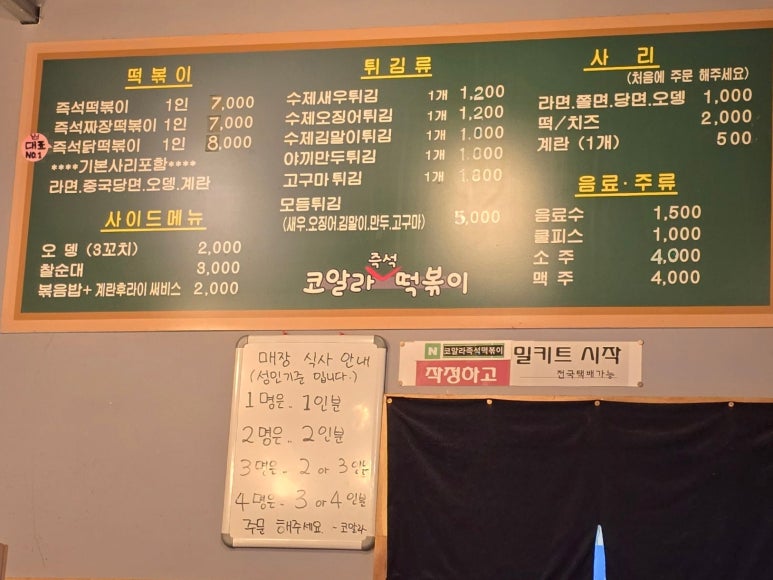 떡볶이
즉석떡볶이 1인 7,000
즉석짜장떡볶이 1인 7,000
대표
NO.1
즉석닭떡볶이 1인 8,000
****기본사리포함****
라면.중국당면.오뎅.계란
사이드메뉴
오 뎅 (3꼬치) 2,000
찰순대 3,000
볶음밥+ 계란후라이 써비스 2,000
튀김류
수제새우튀김 1개 1,200
수제오징어튀김 1개 1,200
수제김말이튀김 1개 1.000
야끼만두튀김 1개
고구마튀김 1개
모듬튀김
(새우.오징어.김말이.만두.고구마) 5,000
즉석
코알라 떡볶이
사 리
(처음에 주문 해주세요)
라면.쫄면.당면.오뎅 1,000
떡/치즈 2,000
계란 (1개) 500
음료·주류
음료수 1,500
쿨피스 1,000
소 주 4,000
맥 주 4,000
매장 식사 안내
(성인기준 입니다.)
1명은.. 1인분
2명은.. 2인분
3명은.. 2 or 3인분
4명은.. 3 or 4인분
주문 해주세요 -코알라
N 코알라즉석떡볶이
작정하고
밀키트 시작
전국택배가능